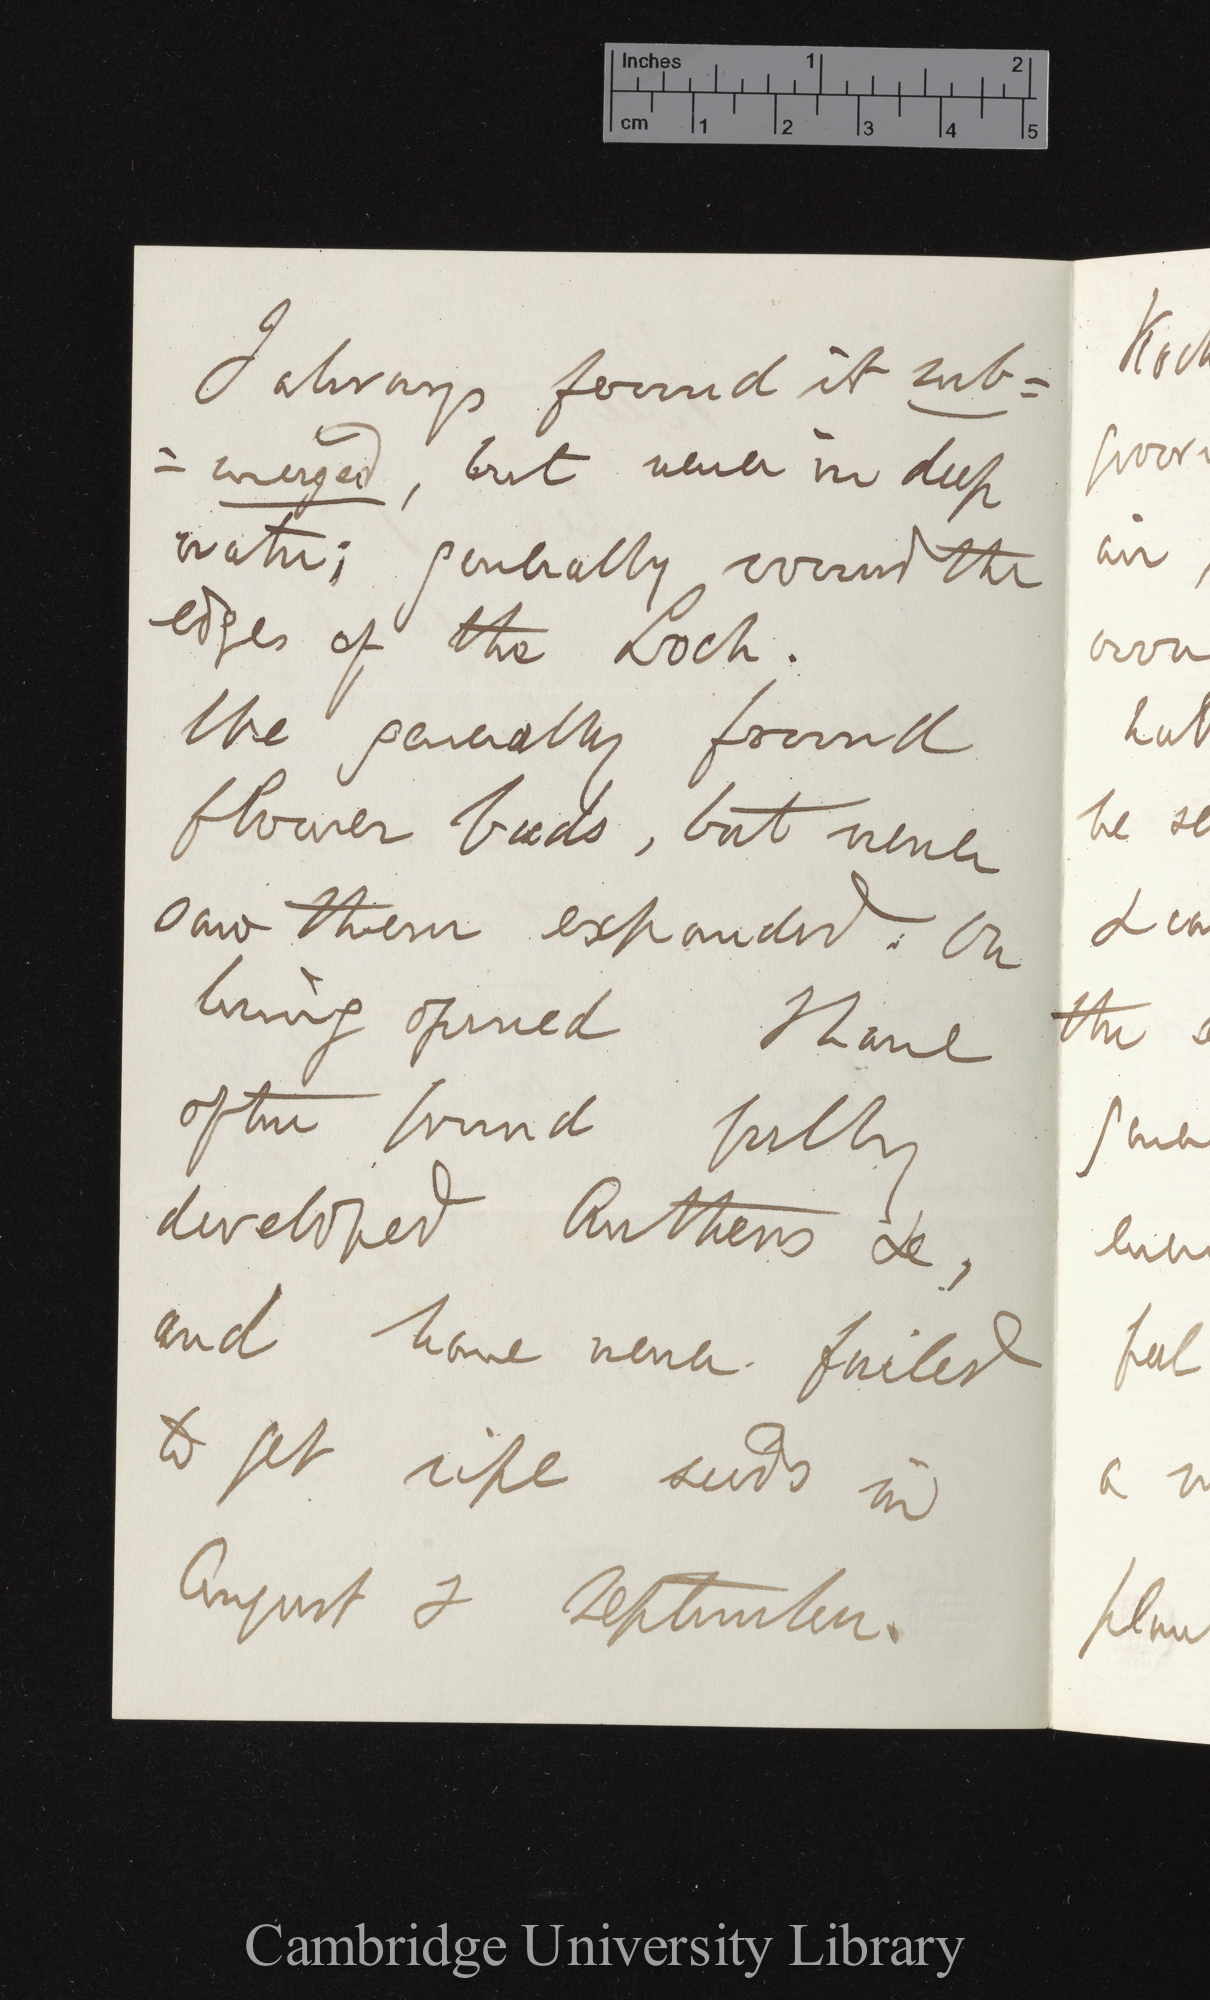 Inches 1 2
cm 1 2 3 4 5
I always found it sub=
=merged, but never in deep
water; generally round the
edges of the Loch.
We generally found
flower buds, but never
saw them expanded. On
being opened I have
often found fully
developed Anthers &c,
and have never failed
to get ripe seeds in
August & September.
air
he
the
a
Cambridge University Library